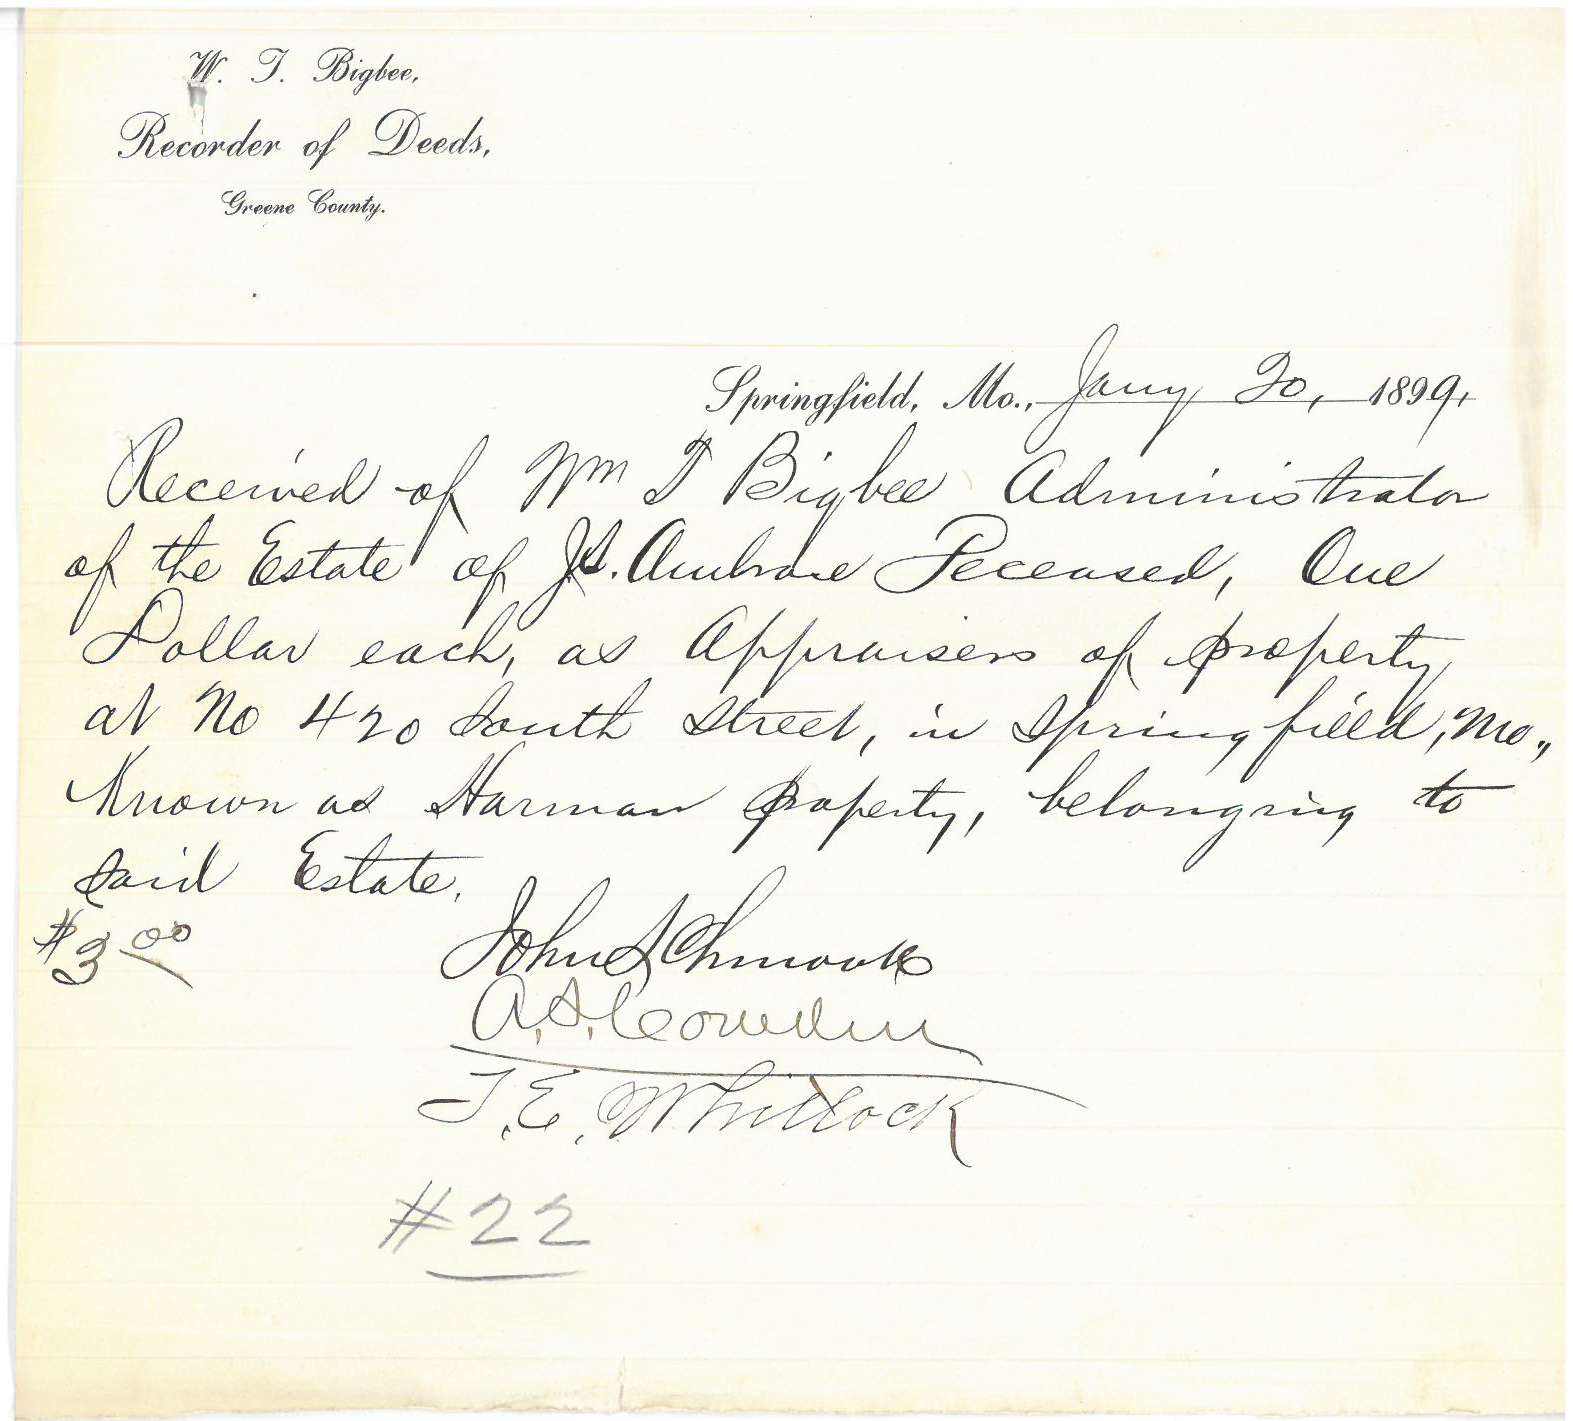 W. T. Bigbee,
Recorder of Deeds,
Greene County.
Springfield, Mo., Jany 20, 1899,
Received of Wm T Bigbee Administrator
of the Estate of J.S. Ambrose Deceased, One
Dollar each, as Appraisers of property
at No 420 South Street, in Springfield, Mo.,
Known as Harman property, belonging to
said Estate.
$3 00
John Schmook
A. S. Cowden
T. E. Whitlock
#22